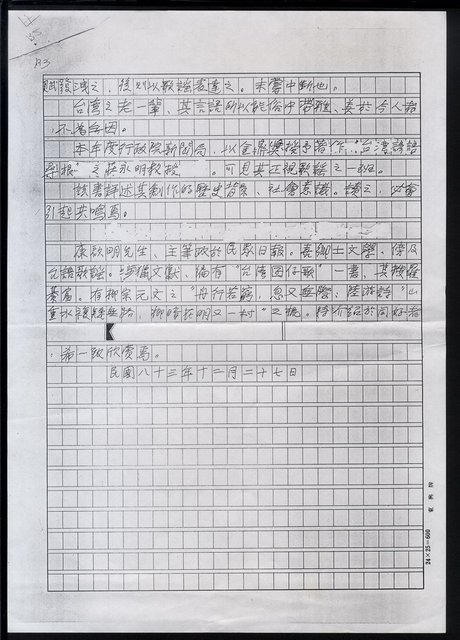 賦詩洩之，後則以歌謠表達之。未嘗中斷也。
台湾之老一輩，其言語所以能俗中帶雅，委於令人
不為無因。
本年度行政院新聞局，以金鼎獎授予著作"台灣諺語
"之莊永明教授。可見其正視歌謠之一班。
該書詳述其創作的歷史背景、社會意識。讀之，必會
引起共鳴焉。
康啟明先生、主筆政於民眾日報。喜鄉土文學、傍及
台語歌謠。文獻，編有"台湾囝仔歌"一書，其
。有柳宗元文之"舟行若窮，忽又無際，陸游詩"山
重水複疑無路，柳暗花明又一村"之境。特介紹於同好者
希一致欣賞焉。
民國八十三年十二月二十七日
24×25=600